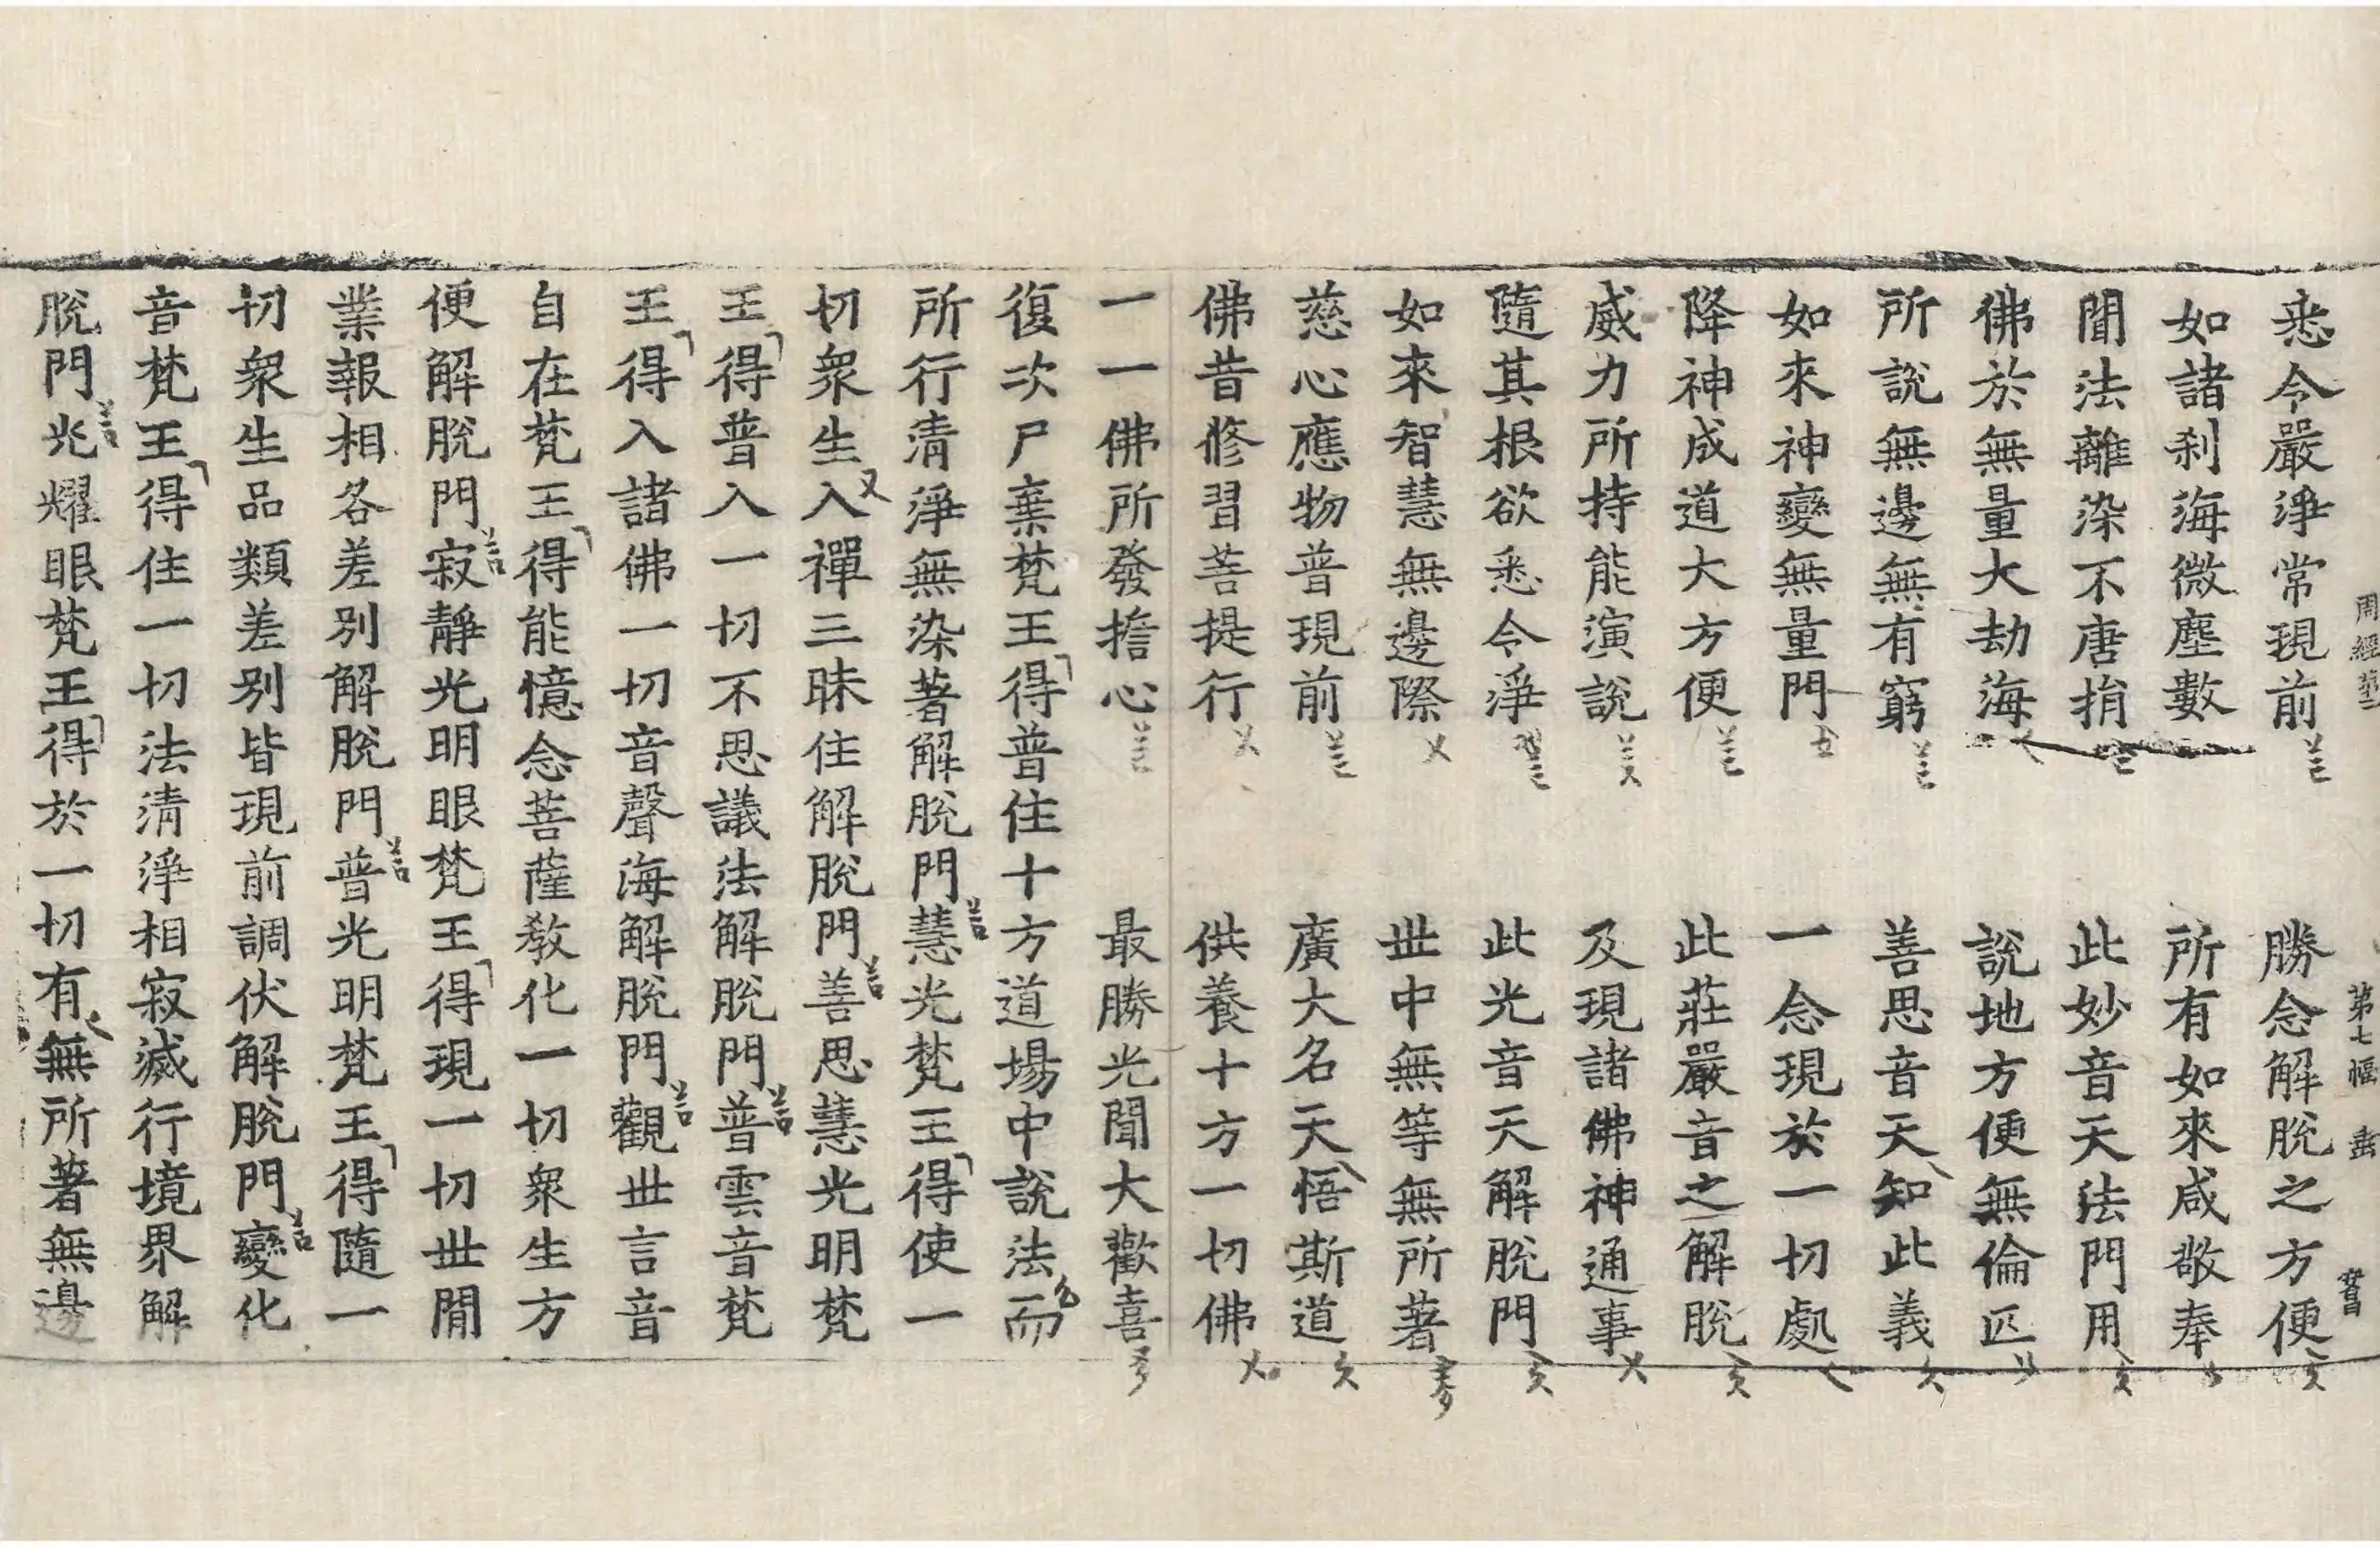 周經第二 第七幅 
悉令嚴淨常現前 勝念解脫之方便
如諸刹海微塵數 所有如來咸敬奉
聞法離染不唐捐 此妙音天法門用
佛於無量大劫海 說地方便無倫匹
所說無邊無有窮 善思音天知此義
如來神變無量門 一念現於一切處
降神成道大方便 此莊嚴音之解脫
威力所持能演說 及現諸佛神通事
隨其根欲悉令淨 此光音天解脫門
如來智慧無邊際 世中無等無所著
慈心應物普現前 廣大名天悟斯道
佛昔修習菩提行 供養十方一切佛
一一佛所發擔心 最勝光聞大歡喜
復次尸棄梵王得普住十方道場中說法而
所行清淨無染著解脫門慧光梵王得使一
切衆生入禪三昧住解脫門善思慧光明梵
王得普入一切不思議法解脫門普雲音梵
王得入諸佛一切音聲海解脫門觀世言音
自在梵王得能憶念菩薩教化一切衆生方
便解脫門寂靜光明眼梵王得現一切世間
業報相各差別解脫門普光明梵王得隨一
切衆生品類差別皆現前調伏解脫門變化
音梵王得住一切法清淨相寂滅行境界解
脫門光耀眼梵王得於一切有無所著無邊